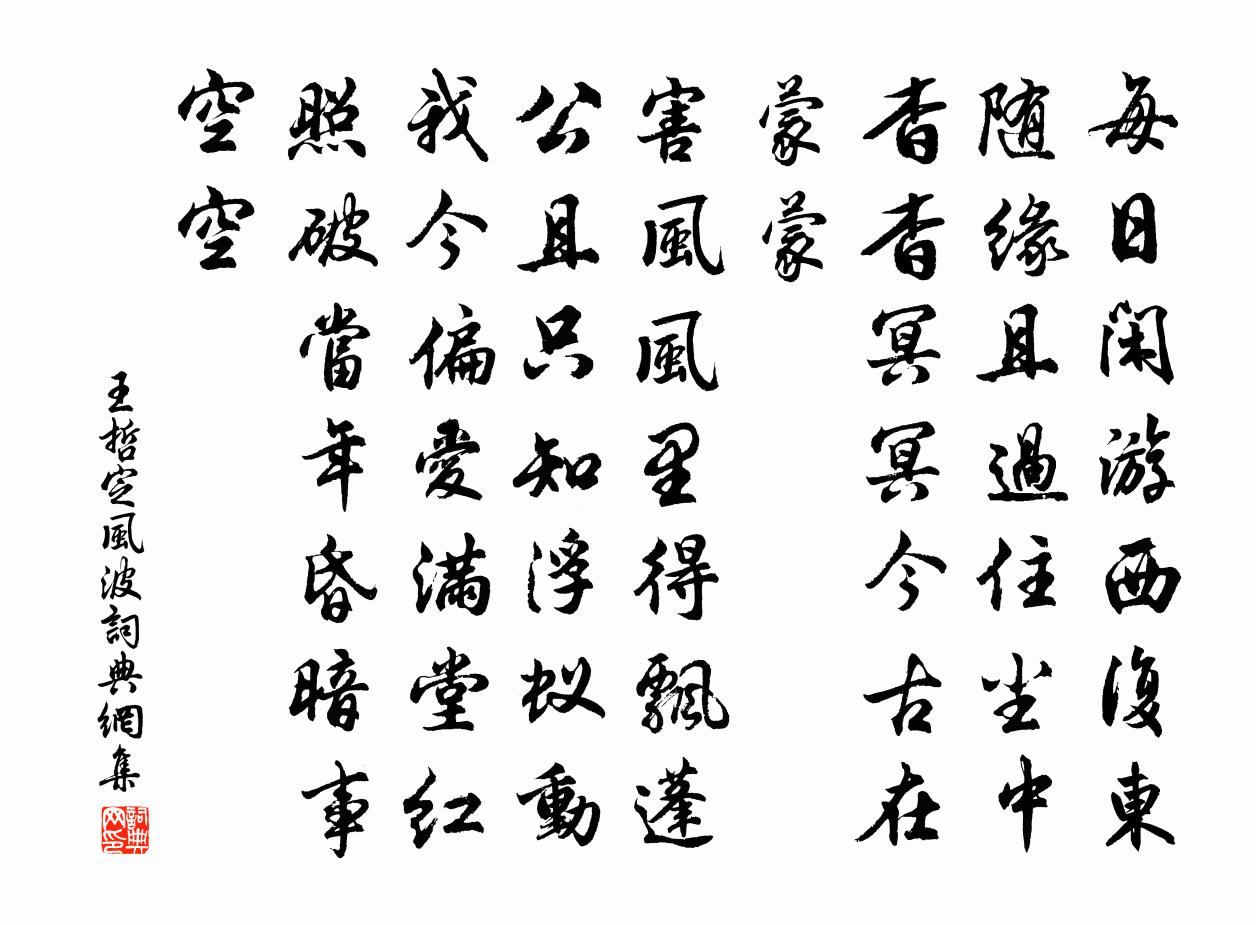 每日閑游西復東
随緣且過住尘中
杳杳冥冥今古在
蒙蒙
害風風里得飄蓬
公且只知浮蚁動
我今偏愛满堂红
照破當年昏暗事
空空
王哲定風波詞典網集
詞典网印